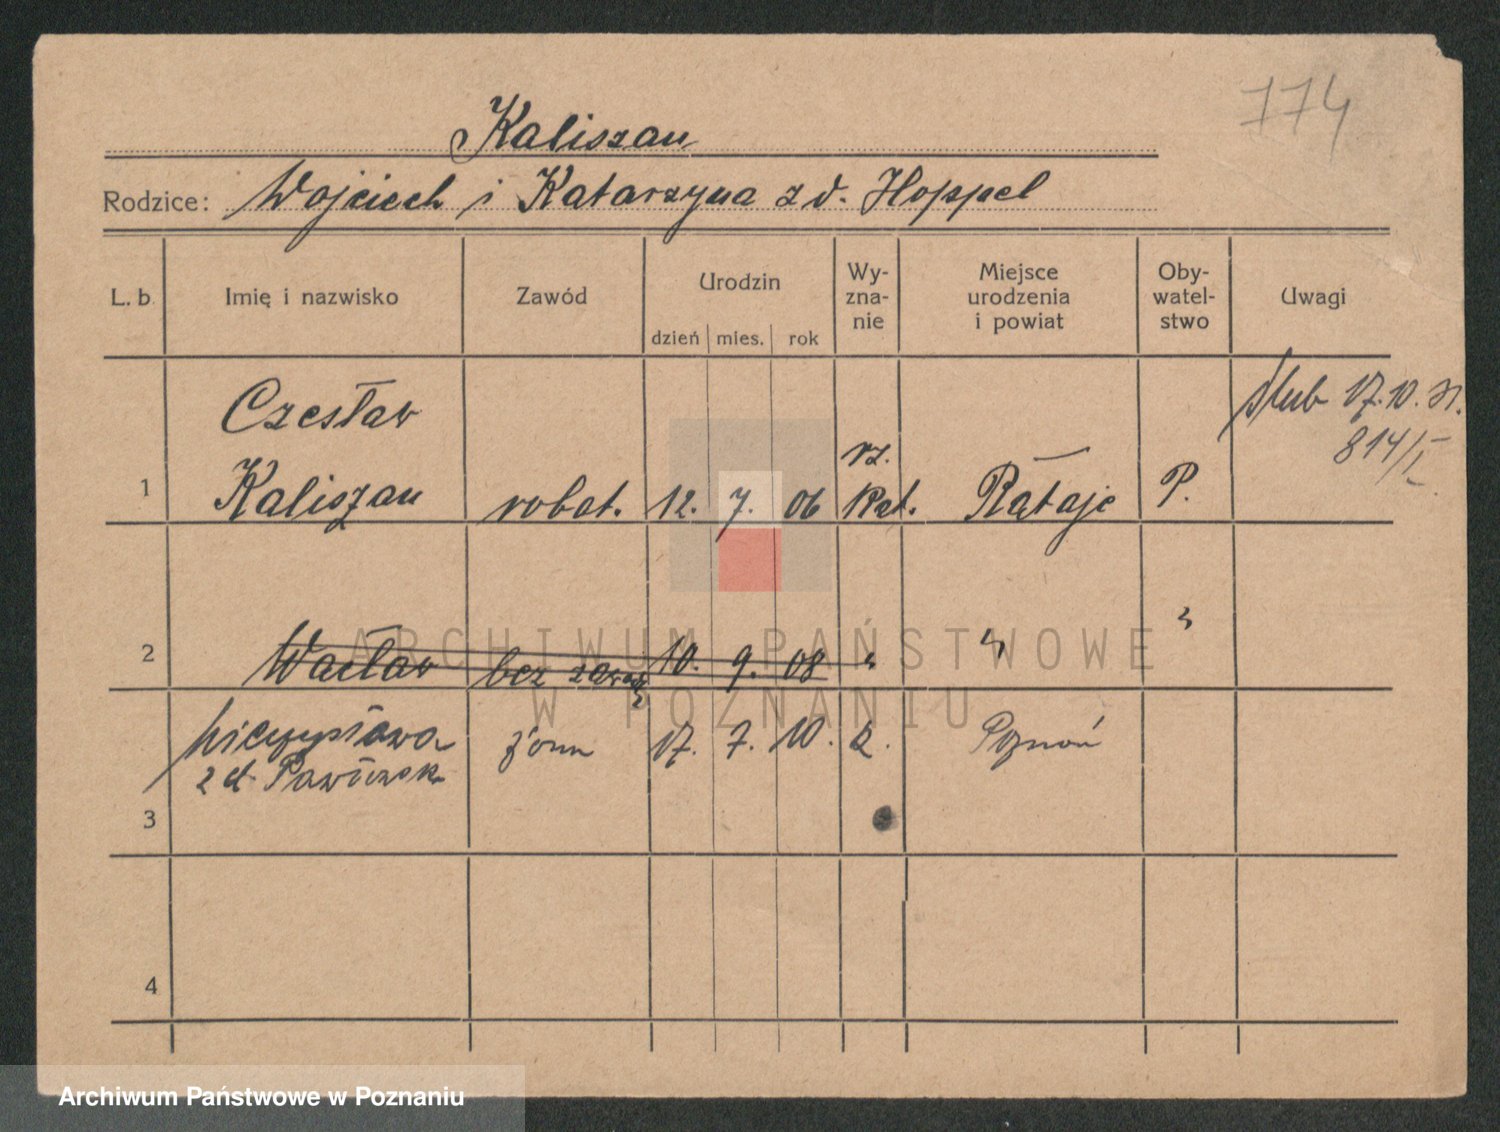 774
Kaliszan
Rodzice: Wojciech i Katarzyna z d. Hoppel
L. b. Imię i nazwisko Zawód Urodzin Wy-zna-nie Miejsce urodzenia i powiat Oby-watel-stwo Uwagi
dzień mies. rok
Czesław
ślub 17.10.31.
814/I
rz.
1 Kaliszan robot. 12. 7. 06 kat. Rataje P.
2 Wacław bez zawodu 10. 9. 08 " " "
Mieczysława żona 17. 7. 10. Poznań
z d.
3
4
ARCHIWUM PAŃSTWOWE
W POZNANIU
Archiwum Państwowe w Poznaniu